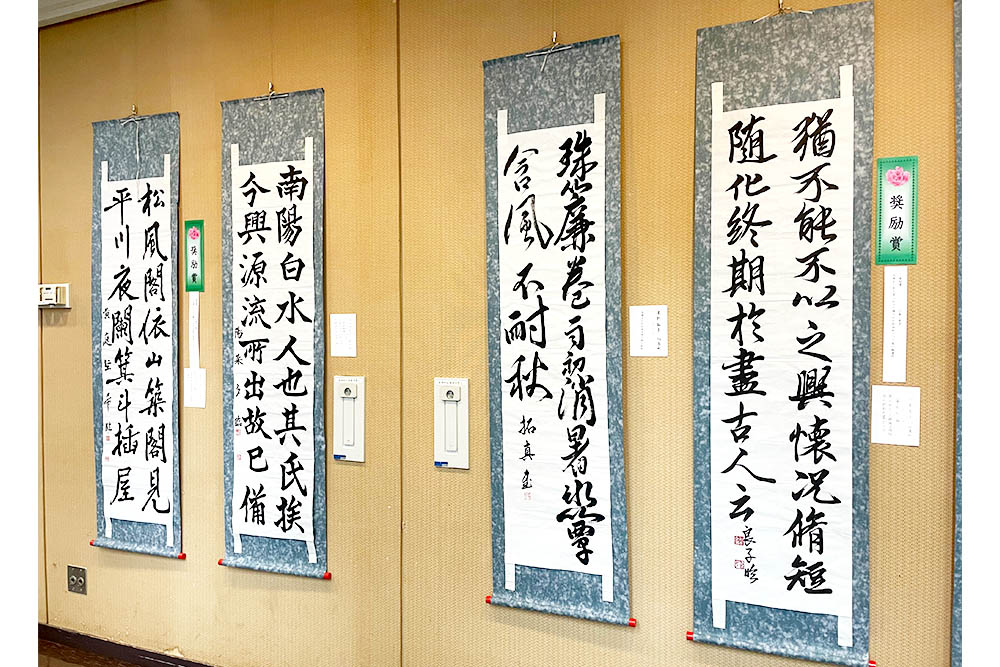 奨励賞
猶不能不以之興懐况脩短
随化終期於盡古人云
良子臨
珠簾巻雨初消暑氷簟
含風不耐秋
拓真書
南陽白水人也其氏挨
今興源流所出故已備
奨励賞
松風閣依山築閣見
平川夜闌箕斗插屋